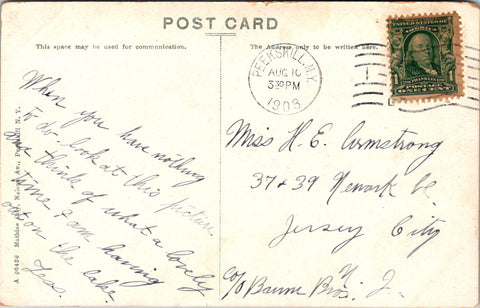 POST CARD
This space may be used for communication.
The Address only to be written here.
When you have nothing
to do look at this picture
and think of what a lovely
time I am having
out on the lake.
Jess.
PEEKSKILL, N.Y.
AUG 10
330PM
1908
UNITED STATES OF AMERICA
FRANKLIN
1 1
POSTAGE
ONE CENT
Miss H. E. Armstrong
37 + 39 Newark
Jersey City
N. J.
c/o Baum Bros.
A 96420 Nelson Av., Peekskill N. Y.